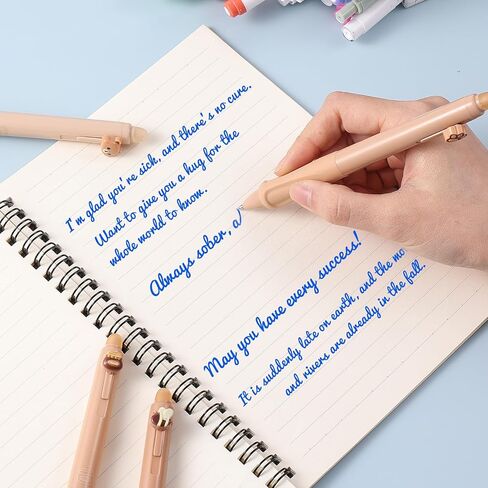 I'm glad you're sick, and there's no cure.
Want to give you a hug for the
whole world to know.
Always sober, a
May you have every success!
It is suddenly late on earth, and the mo
and rivers are already in the fall.